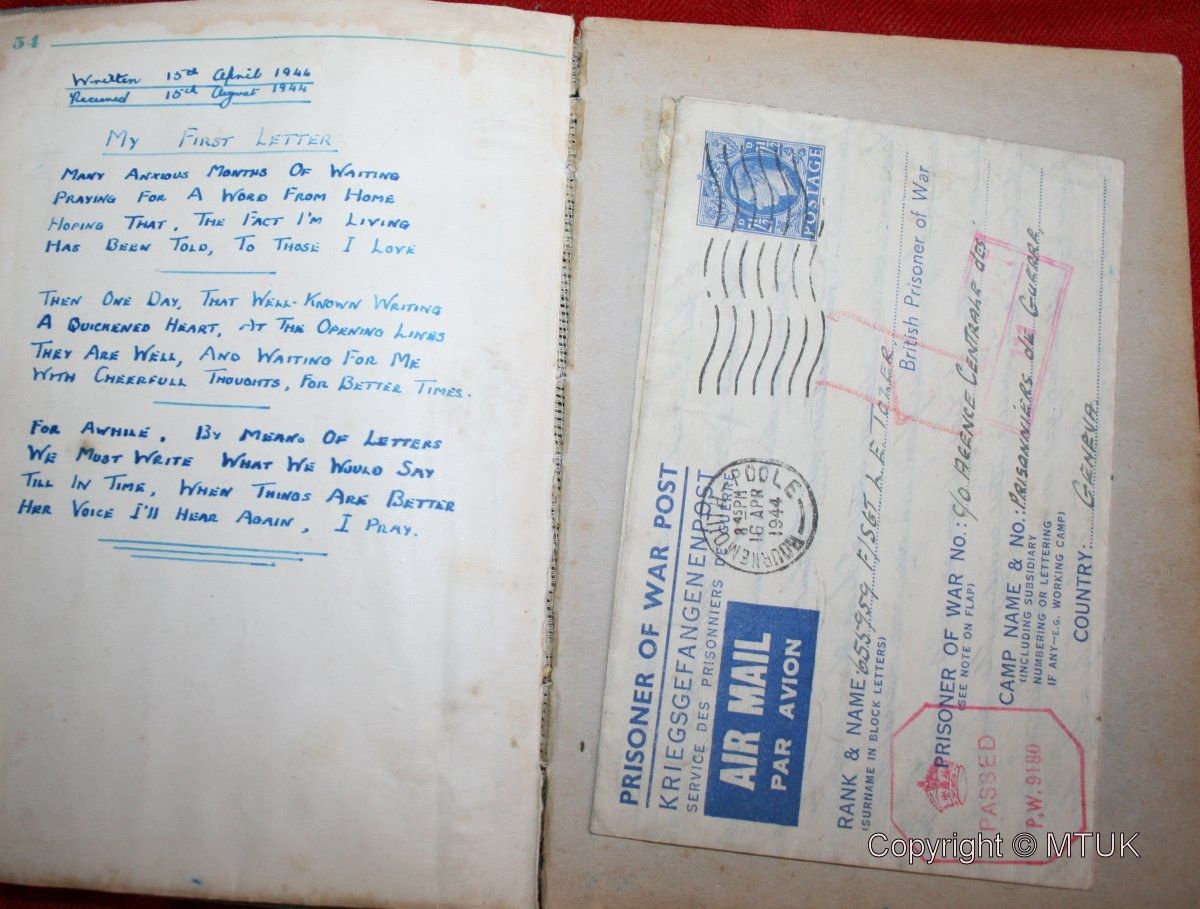 54
Written 15th April 1944
Received 15th August 1944
MY FIRST LETTER
MANY ANXIOUS MONTHS OF WAITING
PRAYING FOR A WORD FROM HOME
HOPING THAT, THE FACT I'M LIVING
HAS BEEN TOLD, TO THOSE I LOVE
THEN ONE DAY, THAT WELL-KNOWN WRITING
A QUICKENED HEART, AT THE OPENING LINES
THEY ARE WELL, AND WAITING FOR ME
WITH CHEERFULL THOUGHTS, FOR BETTER TIMES.
FOR AWHILE, BY MEANS OF LETTERS
WE MUST WRITE WHAT WE WOULD SAY
TILL IN TIME, WHEN THINGS ARE BETTER
HER VOICE I'LL HEAR AGAIN, I PRAY.
PRISONER OF WAR POST
KRIEGSGEFANGENENPOST
SERVICE DES PRISONNIERS DE GUERRE
AIR MAIL
PAR AVION
BOURNEMOUTH POOLE
8 45 PM
16 APR
1944
POSTAGE
2½D
RANK & NAME: 655959 F/SGT L E TOZER
(SURNAME IN BLOCK LETTERS)
British Prisoner of War
PRISONER OF WAR No.: c/o AGENCE CENTRALE des
(SEE NOTE ON FLAP)
CAMP NAME & NO.: PRISONNIERS de GUERRE,
(INCLUDING SUBSIDIARY
NUMBERING OR LETTERING
IF ANY—E.G. WORKING CAMP)
COUNTRY: GENEVA
PASSED
P.W. 9180
Copyright © MTUK